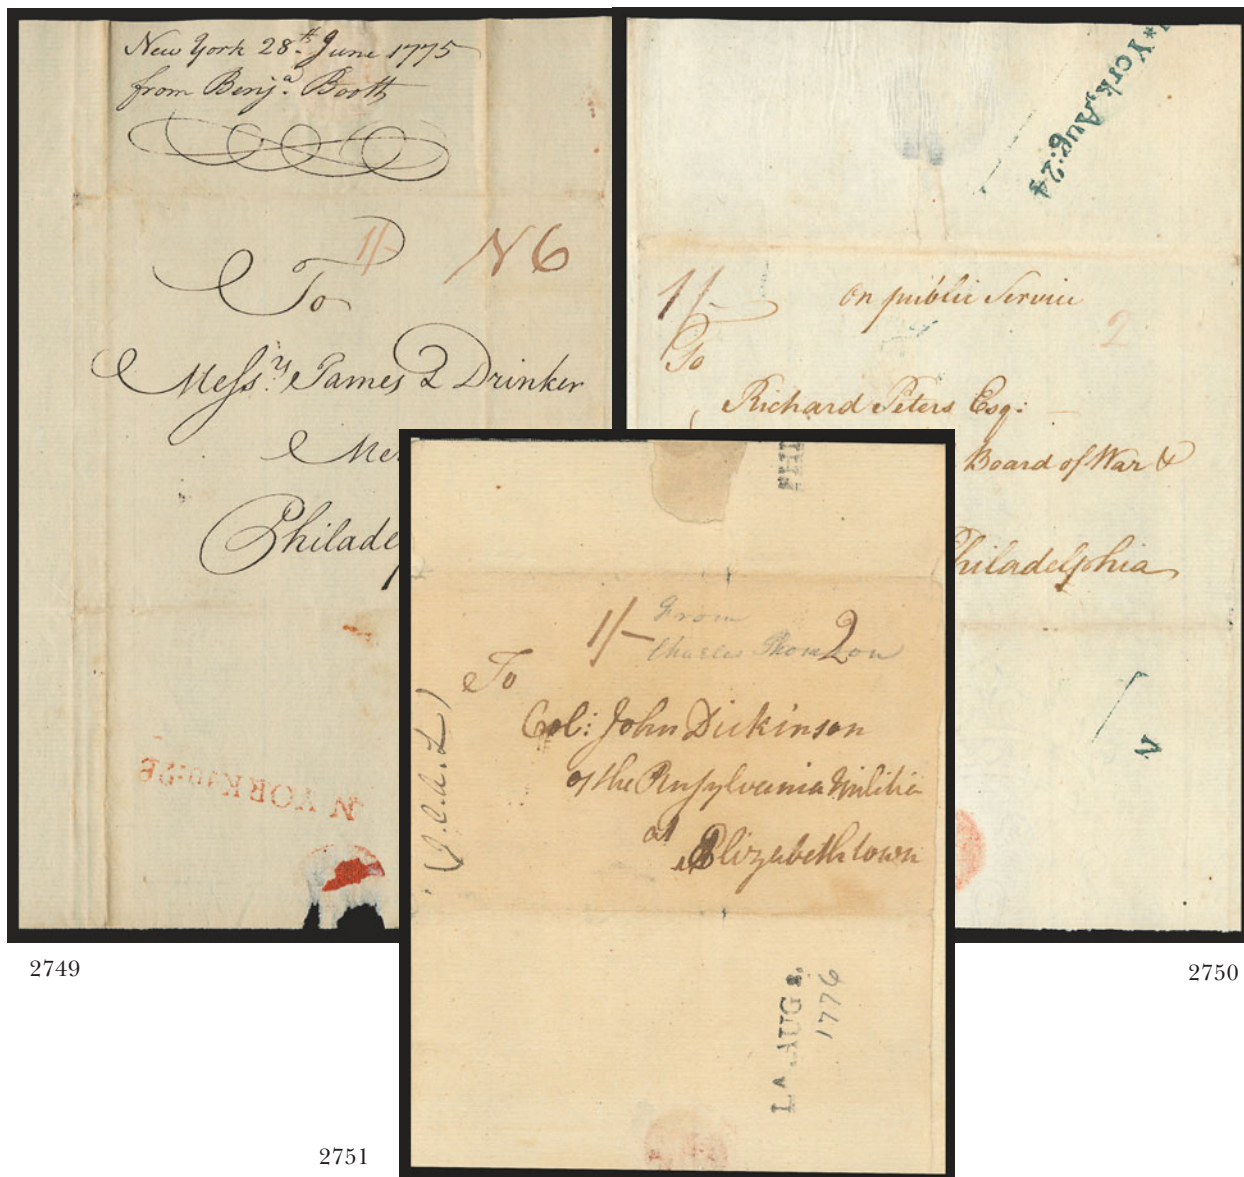 New York 28.th June 1775
from Benj.a Booth
1/-
N 6
To
Mess.rs James & Drinker
Mer
Philade
N YORK
2749
*York, Aug: 24
1/-
On public Service
2
To
Richard Peters Esq:
Board of War &
Philadelphia
N
2750
PHI
1/-
From
Charles Thomson
2
To
Col: John Dickinson
of the Pensylvania Militia
at Elizabethtown
LA. AUG
1776
2751